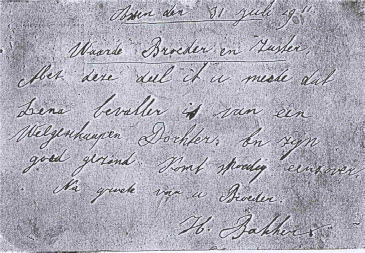 Assen den 31 Juli 19
Waarde Broeder en Zuster,
Met deze deel ik u mede dat
Lena bevallen is van een
Welgeschapen Dochter; En zijn
goed gezond. Komt spoedig eens over
Na groete van u Broeder.
H. Bakker